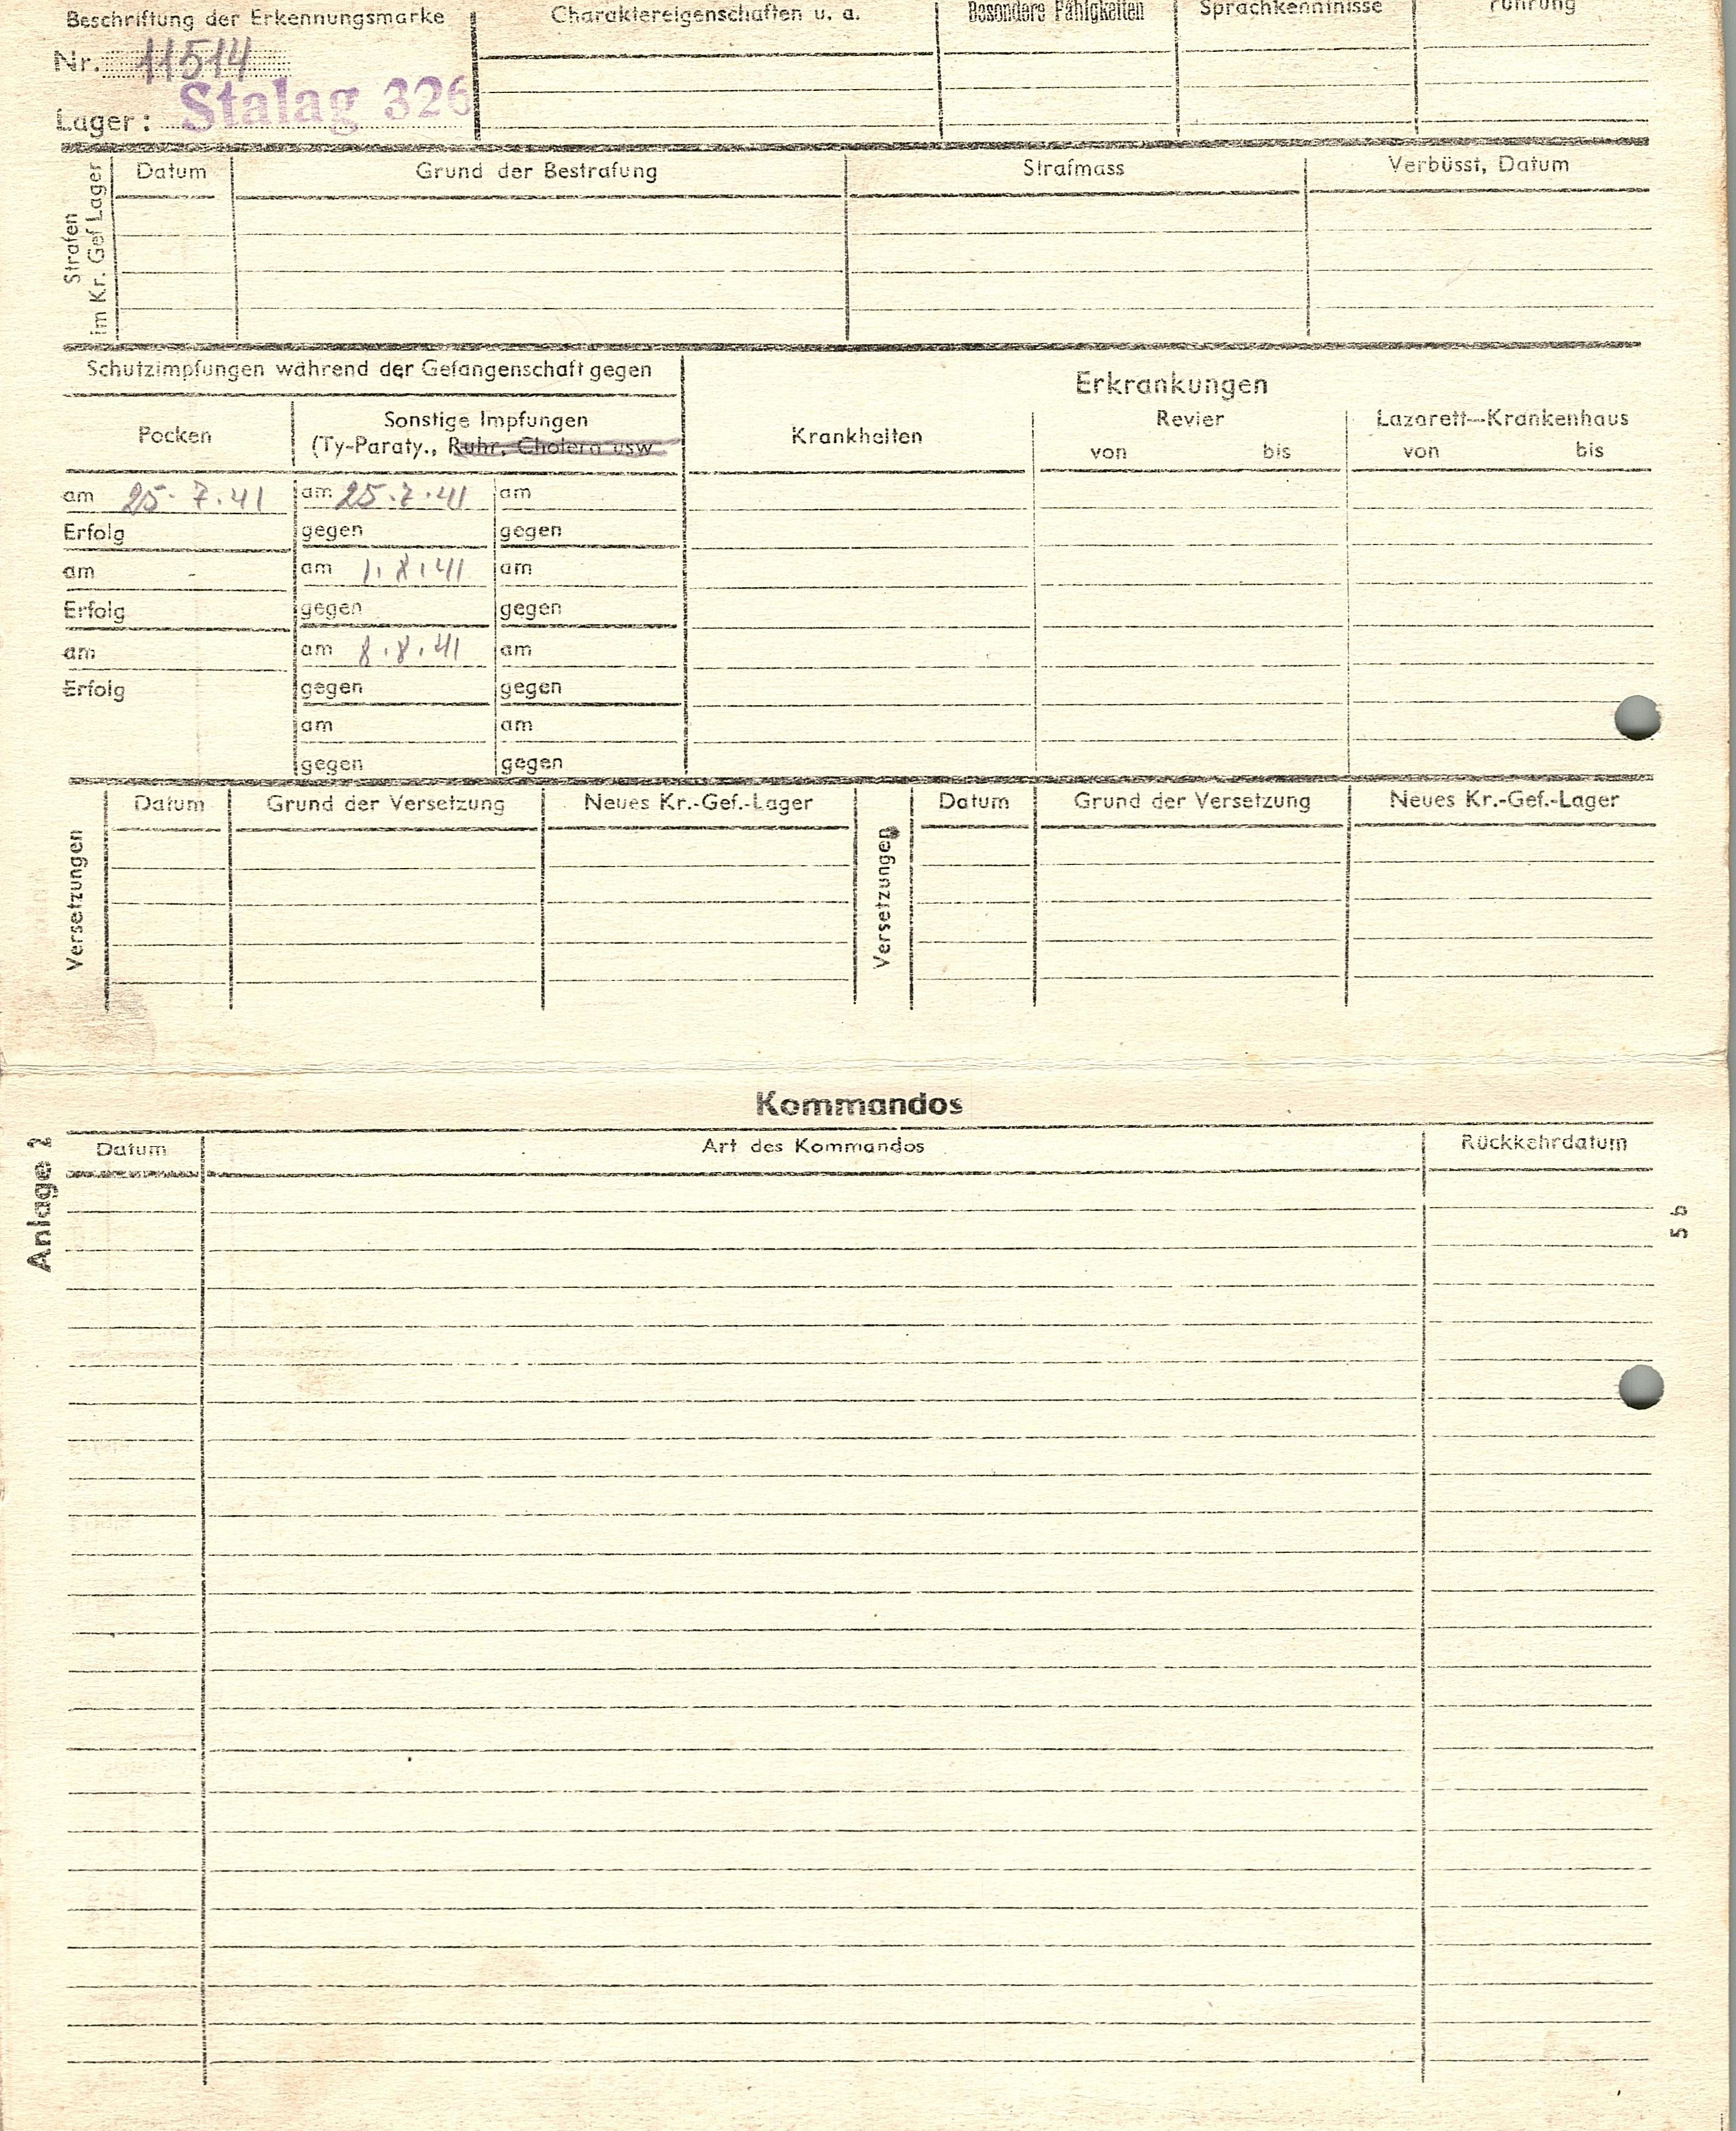 Beschriftung der Erkennungsmarke
Charaktereigenschaften u. a.
Besondere Fähigkeiten
Sprachkenntnisse
Führung
Nr. 11514
Lager: Stalag 326
Strafen
im Kr. Gef Lager
Datum
Grund der Bestrafung
Strafmass
Verbüsst, Datum
Schutzimpfungen während der Gefangenschaft gegen
Pocken
Sonstige Impfungen
(Ty-Paraty., Ruhr, Cholera usw
am 25. 7. 41
am 25. 7. 41
am
Erfolg
gegen
gegen
am
am 1. 8. 41
am
Erfolg
gegen
gegen
am
am 8. 8. 41
am
Erfolg
gegen
gegen
am
am
gegen
gegen
Erkrankungen
Krankheiten
Revier
von bis
Lazarett-Krankenhaus
von bis
Versetzungen
Datum
Grund der Versetzung
Neues Kr.-Gef.-Lager
Versetzungen
Datum
Grund der Versetzung
Neues Kr.-Gef.-Lager
Kommandos
Anlage 2
Datum
Art des Kommandos
Rückkehrdatum
5 b